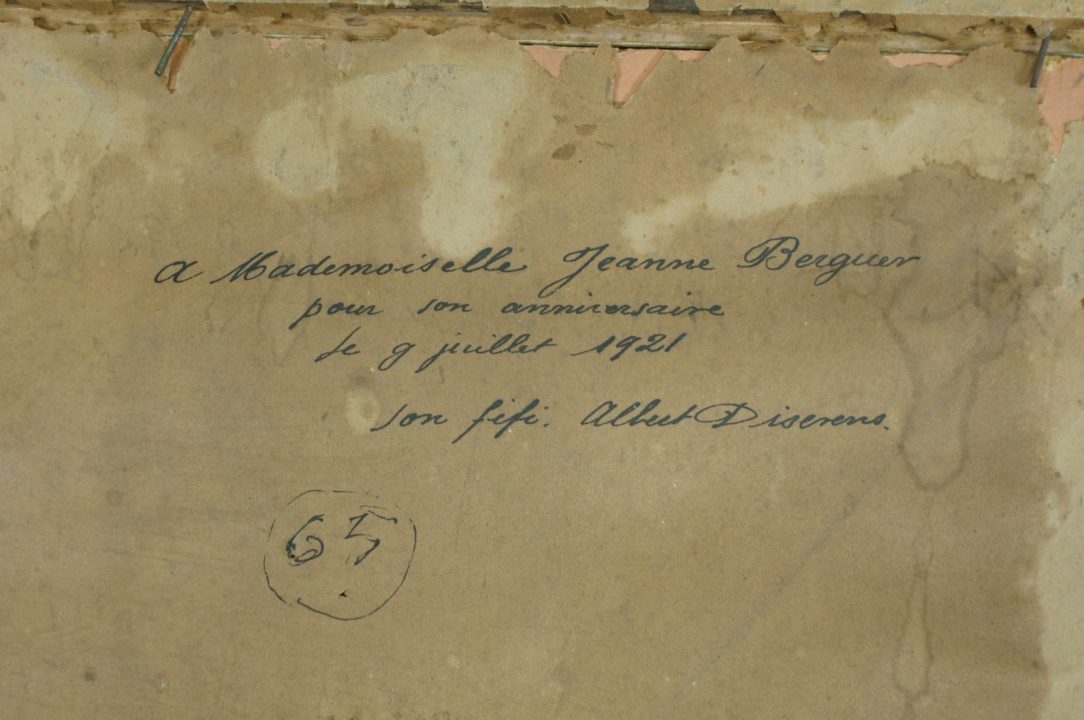 A Mademoiselle Jeanne Berguer
pour son anniversaire
le 9 juillet 1921
son fifi. Albert Diserens.
65